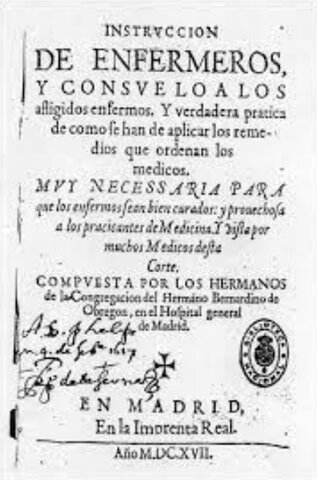 INSTRVCCION
DE ENFERMEROS,
Y CONSVELO A LOS
afligidos enfermos. Y verdadera pratica
de como se han de aplicar los reme-
dios que ordenan los
medicos.
MVY NECESSARIA PARA
que los enfermos sean bien curados: y prouechosa
a los pracicantes de Medicina. Y vista por
muchos Medicos desta
Corte.
COMPVESTA POR LOS HERMANOS
de la Congregacion del Hermano Bernardino de
Obregon, en el Hospital general
de Madrid.
BIBLIOTECA
NACIONAL
EN MADRID,
En la Imprenta Real.
Año M.DC.XVII.